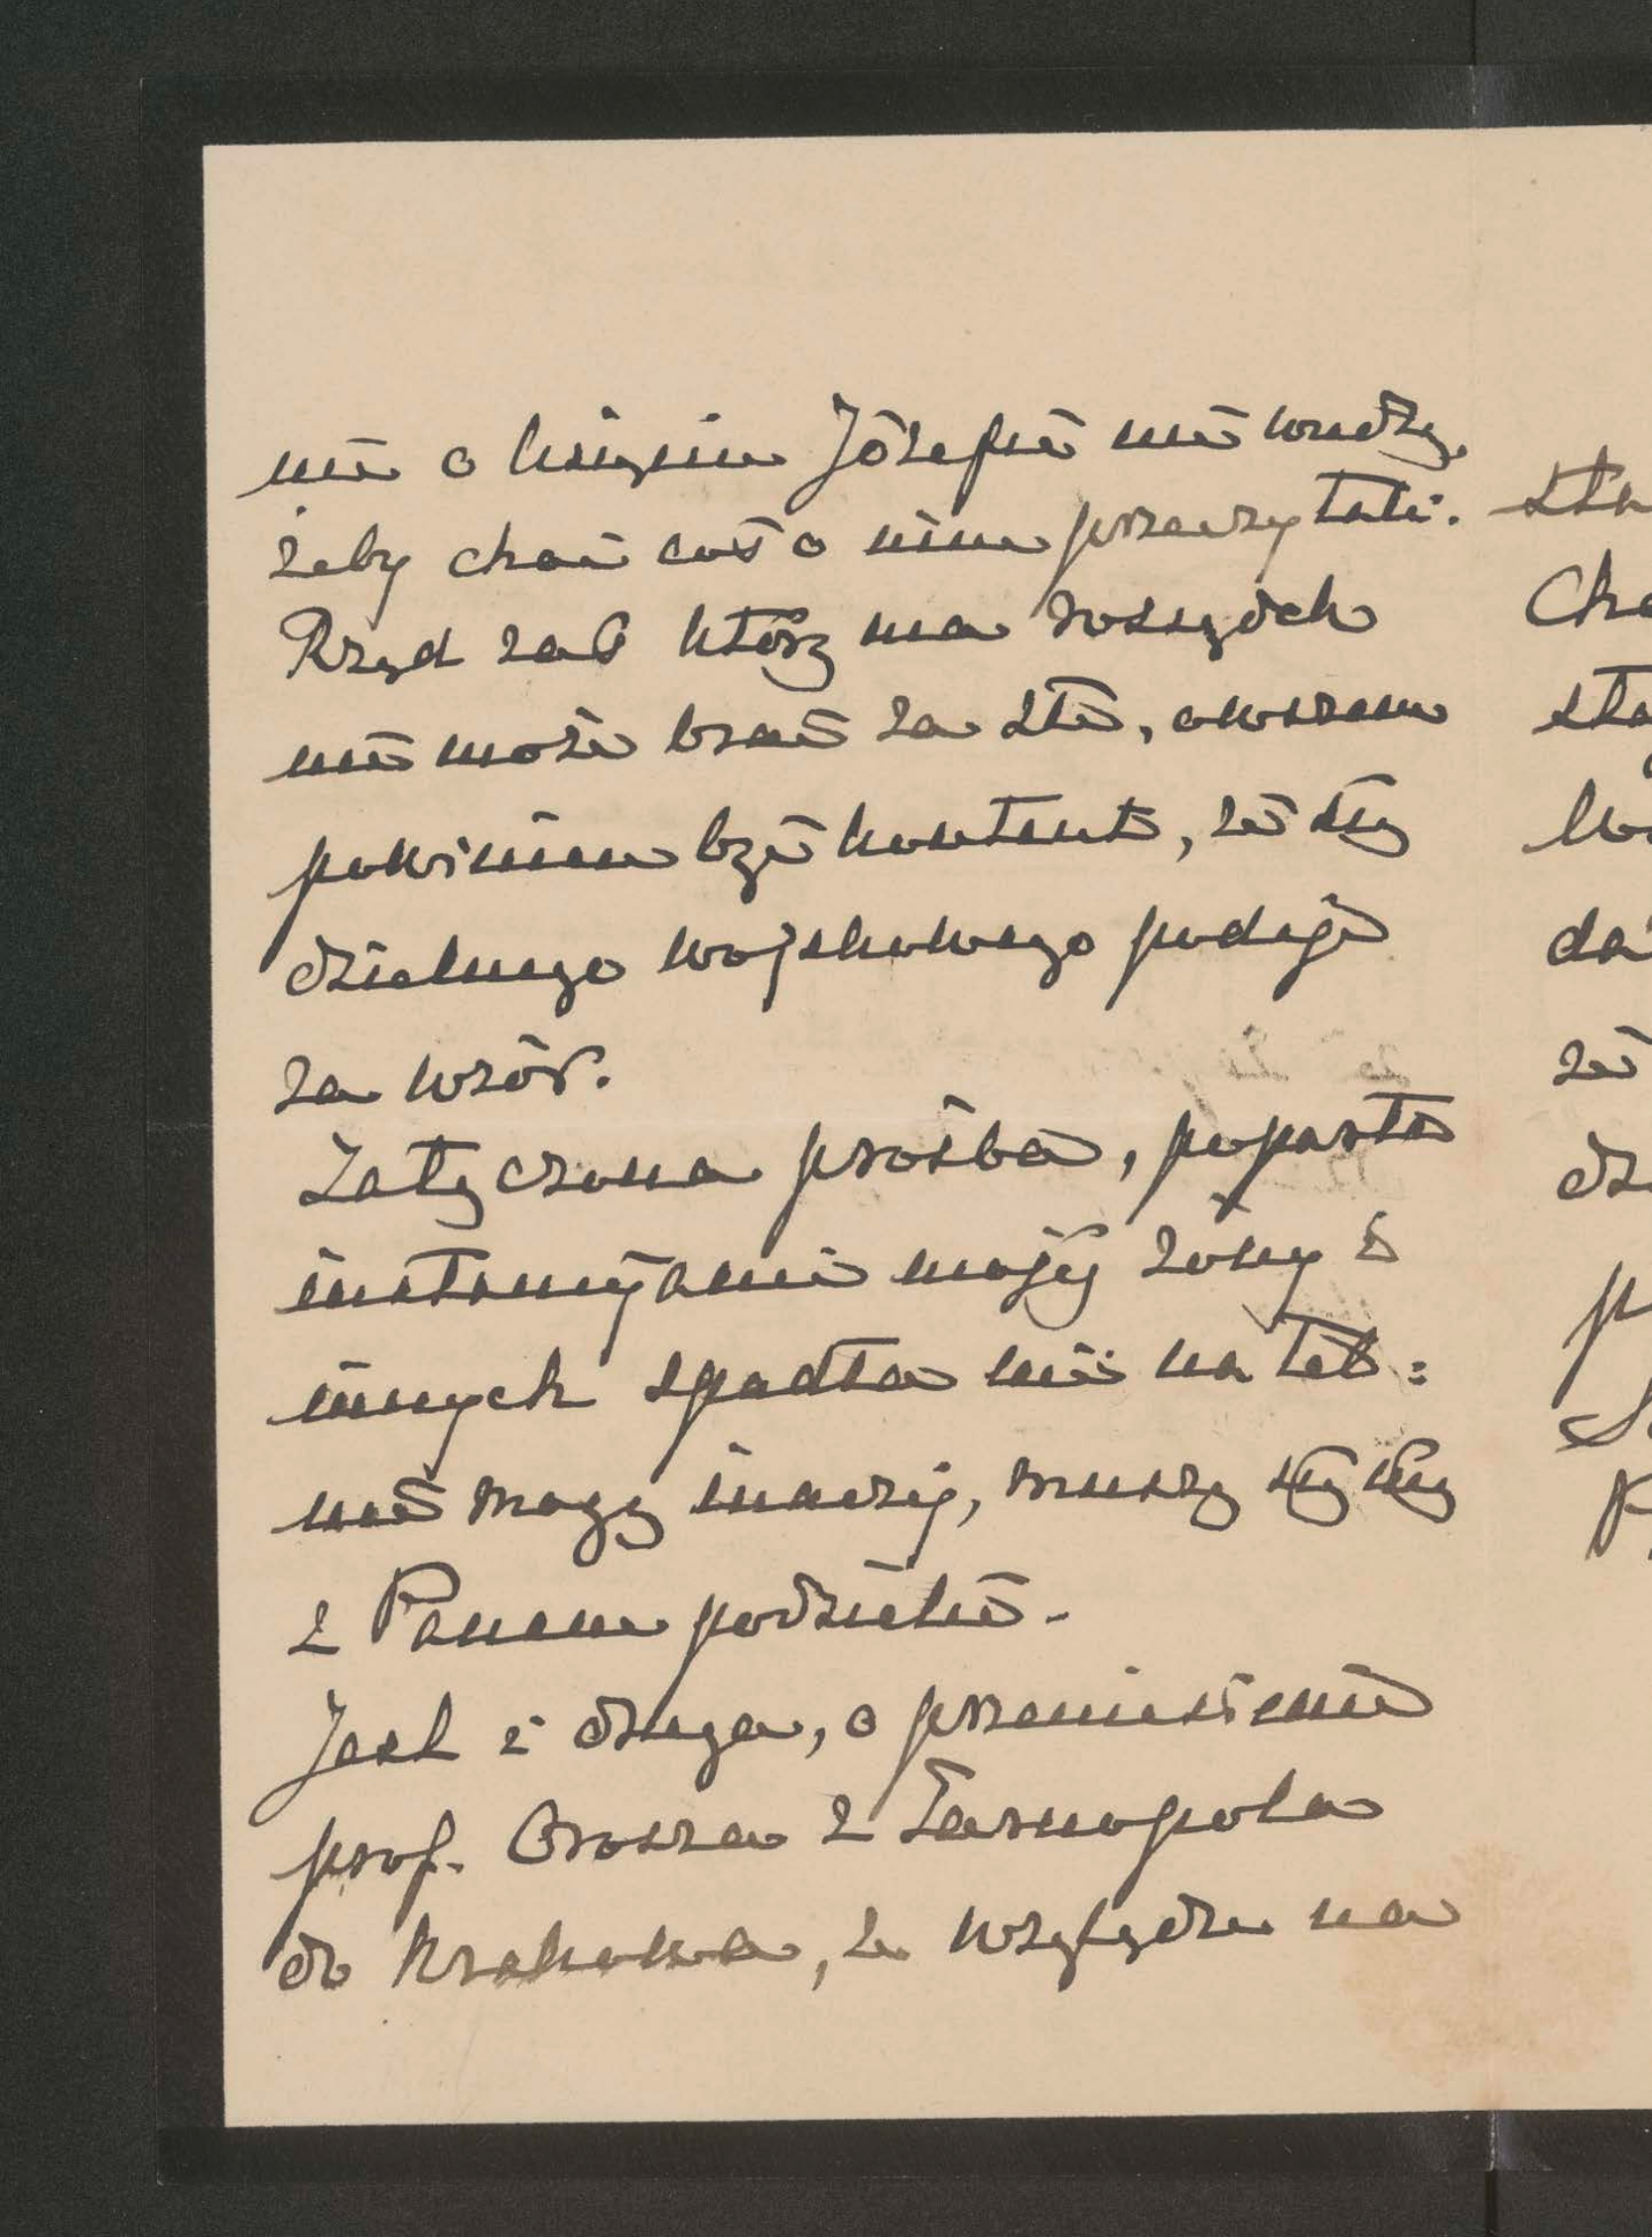 nie o księciu Józefie nie wiedzą,
żeby choć coś o nim przeczytali.
Rząd zaś który ma rozsądek
nie może brać za złe, owszem
powinien być kontent, że się
dzielnego wojskowego podaje
za wzór.
Załączona prośba, poparta
instancyjami mojéj żony i
innych spadła mi na łeb:
nie mogę inaczéj, muszę się nią
z Panem podzielić.
Jest i druga, o przeniesienie
prof. Brossa z Tarnopola
do Krakowa, ze względu na
Cho
da
że